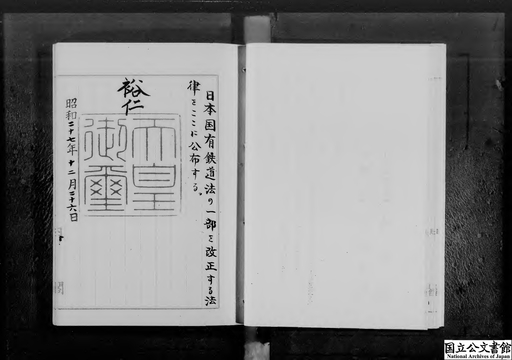 日本国有鉄道法の一部を改正する法
律をここに公布する。
裕仁
天皇
御璽
昭和二十七年十二月二十六日
国立公文書館
National Archives of Japan